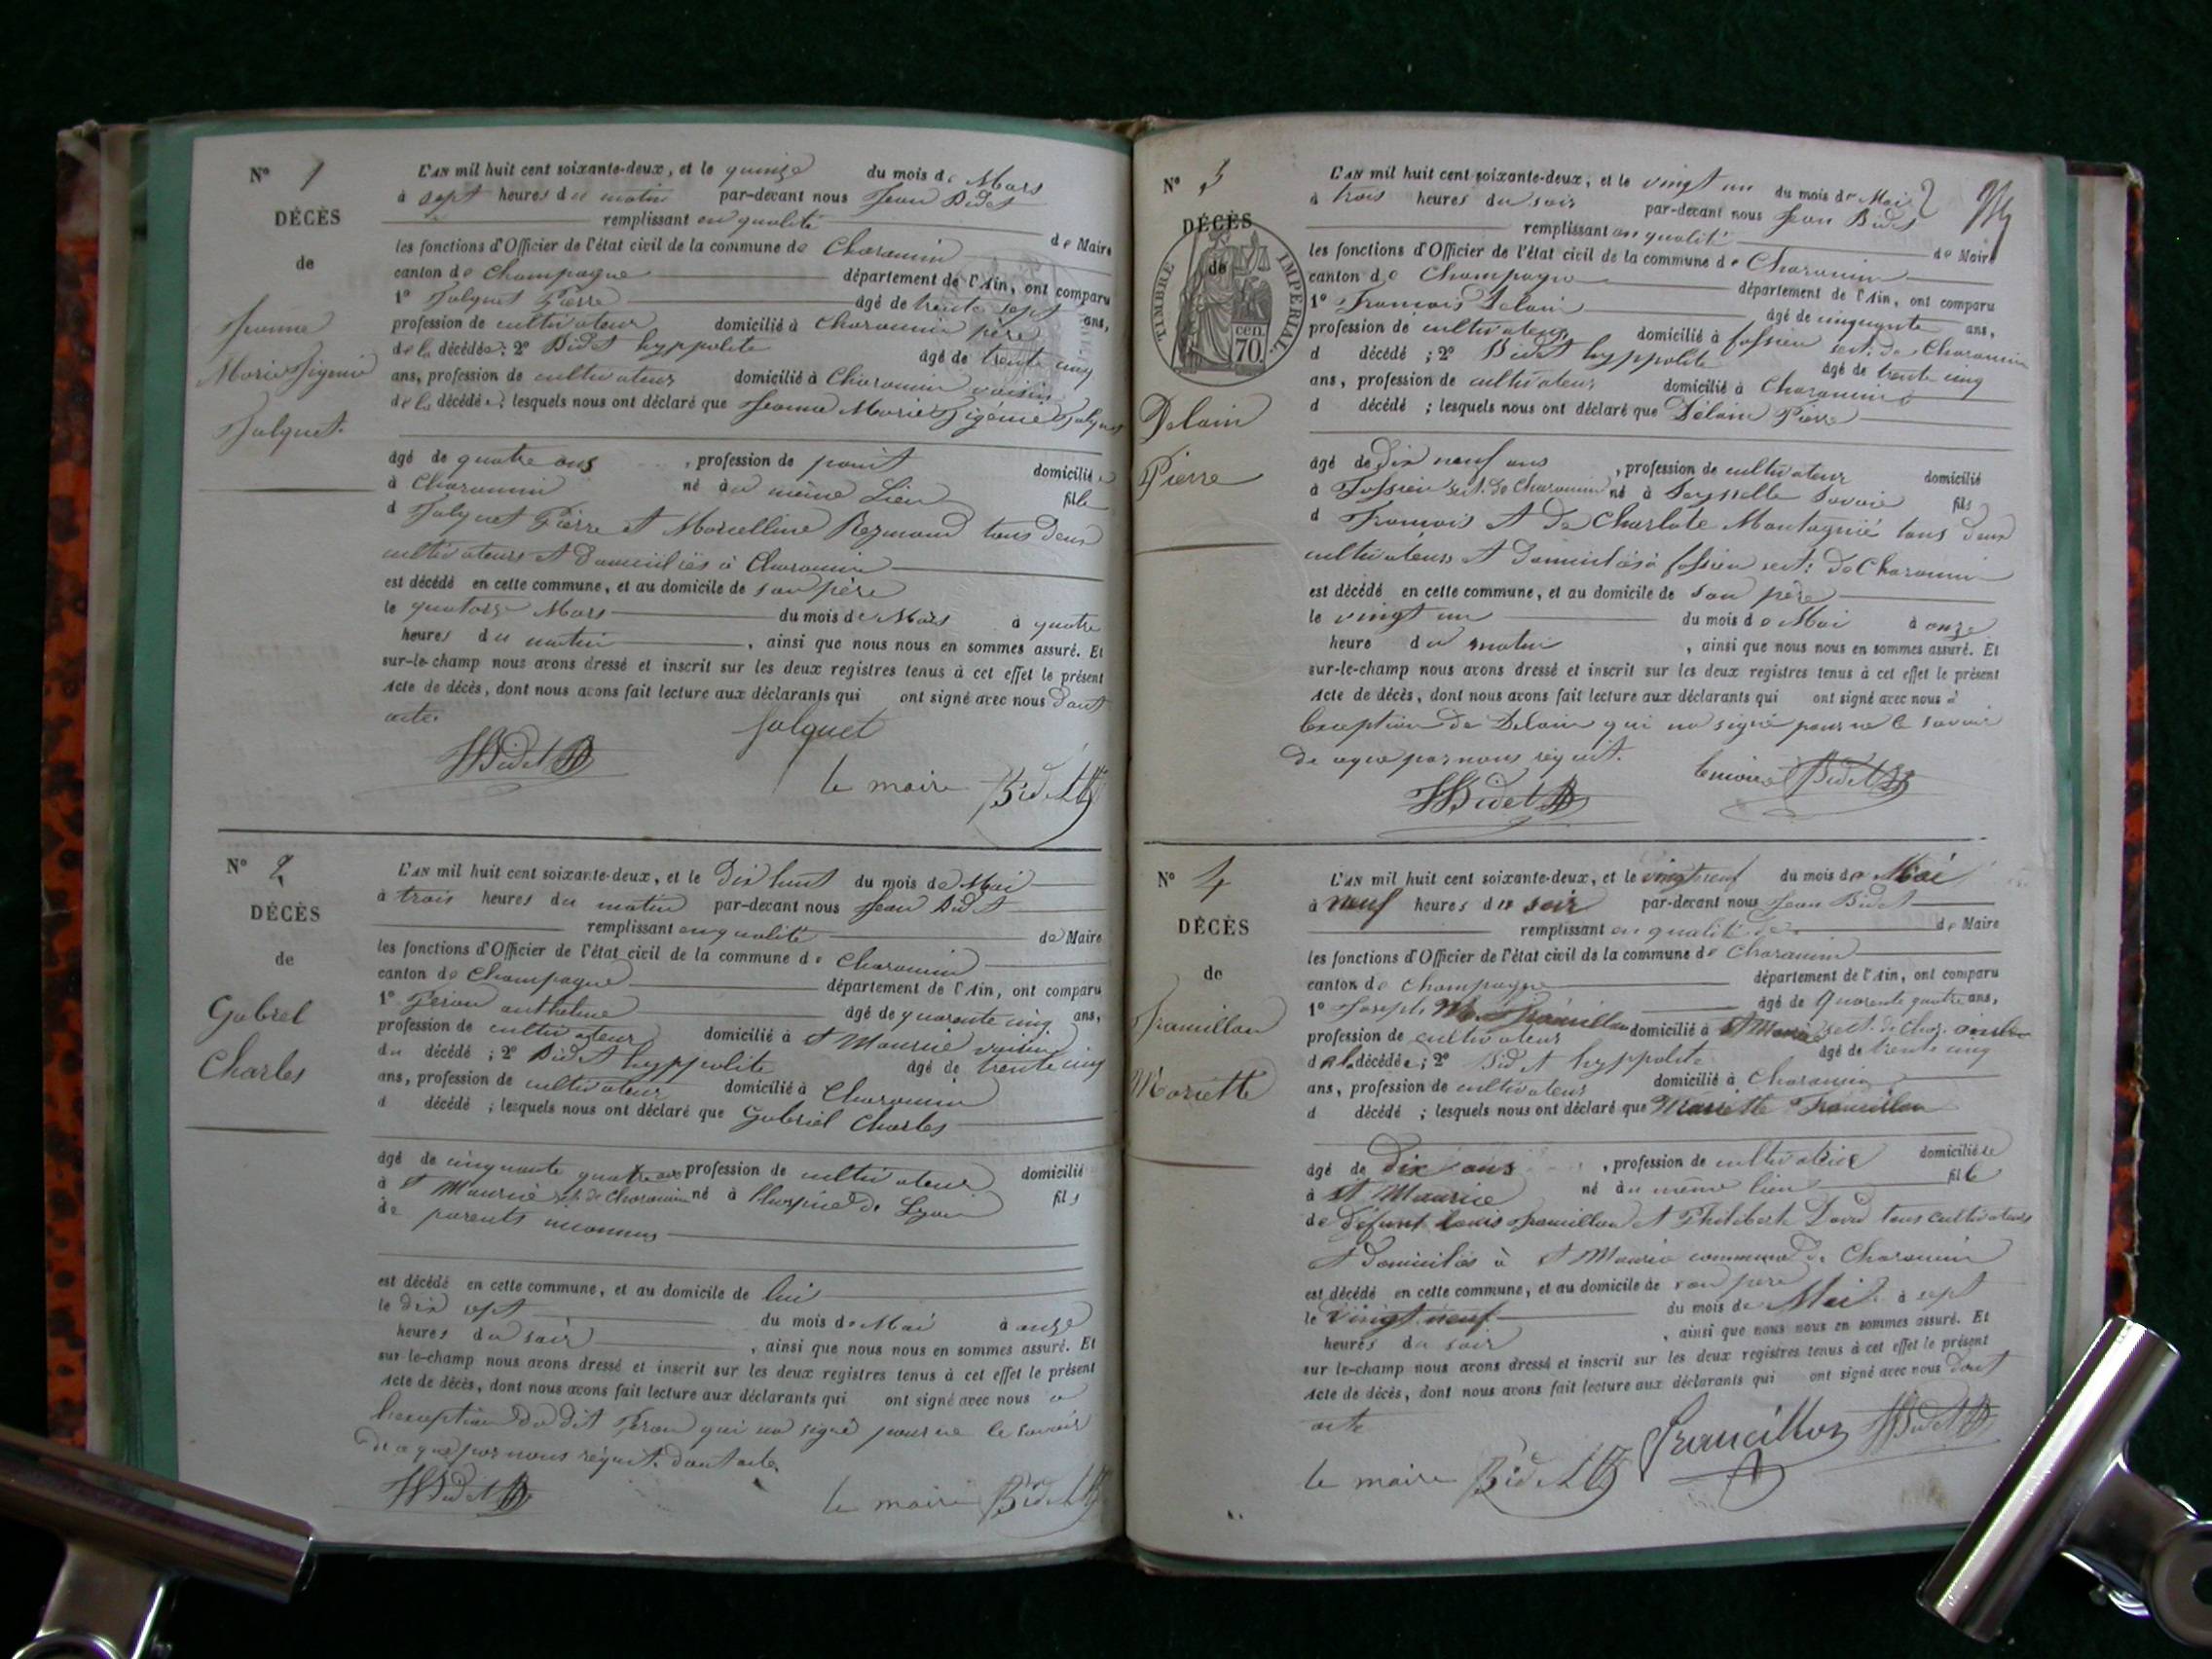 N° 1
DÉCÈS
de
Jeanne
Marie Figenie
Julquet.
L'AN mil huit cent soixante-deux, et le quinze du mois de Mars
à sept heures du matin par-devant nous Jean Bidet
remplissant en qualité de Maire
les fonctions d'Officier de l'état civil de la commune de Charancin
canton de Champagne département de l'Ain, ont comparu
1° Julquet Pierre âgé de trente sept ans,
profession de cultivateur domicilié à Charancin père
de la décédée ; 2° Bidet hyppolite âgé de trente cinq
ans, profession de cultivateur domicilié à Charancin voisin
de la décédée ; lesquels nous ont déclaré que Jeanne Marie Figenie Julquet
âgé de quatre ans , profession de domicilié
à Charancin né au même Lieu fille
d Julquet Pierre et Marcelline Reymond tous deux
cultivateurs et domiciliés à Charancin
est décédé en cette commune, et au domicile de son père
le quatorze Mars du mois de Mars à quatre
heures du matin , ainsi que nous nous en sommes assuré. Et
sur-le-champ nous avons dressé et inscrit sur les deux registres tenus à cet effet le présent
Acte de décès, dont nous avons fait lecture aux déclarants qui ont signé avec nous dont
acte.
Julquet
HBidet
le maire Bidet
N° 2
DÉCÈS
de
Gabrel
Charles
L'AN mil huit cent soixante-deux, et le Dix huit du mois de Mai
à trois heures du matin par-devant nous Jean Bidet
remplissant en qualité de Maire
les fonctions d'Officier de l'état civil de la commune de Charancin
canton de Champagne département de l'Ain, ont comparu
1° Peron anthelme âgé de quarante cinq ans,
profession de cultivateur domicilié à St Maurice voisin
du décédé ; 2° Bidet hyppolite âgé de trente cinq
ans, profession de cultivateur domicilié à Charancin
d décédé ; lesquels nous ont déclaré que Gabriel Charles
âgé de cinquante quatre ans profession de cultivateur domicilié
à St Maurice sect. de Charancin né à l'hospice de Lyon fils
de parents inconnus
est décédé en cette commune, et au domicile de lui
le dix sept du mois de Mai à onze
heures du soir , ainsi que nous nous en sommes assuré. Et
sur-le-champ nous avons dressé et inscrit sur les deux registres tenus à cet effet le présent
Acte de décès, dont nous avons fait lecture aux déclarants qui ont signé avec nous a
lexception du dit Peron qui na signé pour ne le savoir
de ce que par nous réquit. dont acte.
HBidet
le maire Bidet
N° 3
DÉCÈS
de
TIMBRE IMPERIAL.
cen.
70.
Delain
Pierre
L'AN mil huit cent soixante-deux, et le vingt un du mois de Mai
à trois heures du soir par-devant nous Jean Bidet
remplissant en qualité de Maire
les fonctions d'Officier de l'état civil de la commune de Charancin
canton de Champagne département de l'Ain, ont comparu
1° François Delain âgé de cinquante ans,
profession de cultivateur domicilié à fossieu sect. de Charancin
d décédé ; 2° Bidet hyppolite âgé de trente cinq
ans, profession de cultivateur domicilié à Charancin
d décédé ; lesquels nous ont déclaré que Délain Pierre
âgé de Dix neuf ans , profession de cultivateur domicilié
à Fossieu sect. de Charancin né à Savoie fils
d François et de Charlote Montagnié tous deux
cultivateurs et domiciliés à fossieu sect: de Charancin
est décédé en cette commune, et au domicile de son père
le vingt un du mois de Mai à onze
heure du matin , ainsi que nous nous en sommes assuré. Et
sur-le-champ nous avons dressé et inscrit sur les deux registres tenus à cet effet le présent
Acte de décès, dont nous avons fait lecture aux déclarants qui ont signé avec nous à
lexception de Delain qui na signé pour ne le savoir
de ce que par nous réquit.
HBidet
le maire Bidet
N° 4
DÉCÈS
de
Framillon
Mariette
L'AN mil huit cent soixante-deux, et le vingt neuf du mois de Mai
à neuf heures du soir par-devant nous Jean Bidet
remplissant en qualité de de Maire
les fonctions d'Officier de l'état civil de la commune de Charancin
canton de Champagne département de l'Ain, ont comparu
1° Joseph Framillon âgé de Quarente quatre ans,
profession de cultivateur domicilié à St Maurice sect. de Char.
de la décédée ; 2° Bidet hyppolite âgé de trente cinq
ans, profession de cultivateur domicilié à Charancin
d décédé ; lesquels nous ont déclaré que Mariette Framillon
âgé de Dix ans , profession de cultivatrice domiciliée
à St Maurice né au même lieu fille
de défunt Louis Framillon et Philiberte David tous cultivateurs
et domiciliés à St Maurice commune de Charancin
est décédé en cette commune, et au domicile de son père
le Vingt neuf du mois de Mai à sept
heures du soir , ainsi que nous nous en sommes assuré. Et
sur le-champ nous avons dressé et inscrit sur les deux registres tenus à cet effet le présent
Acte de décès, dont nous avons fait lecture aux déclarants qui ont signé avec nous dont
acte
Francillon HBidet
le maire Bidet